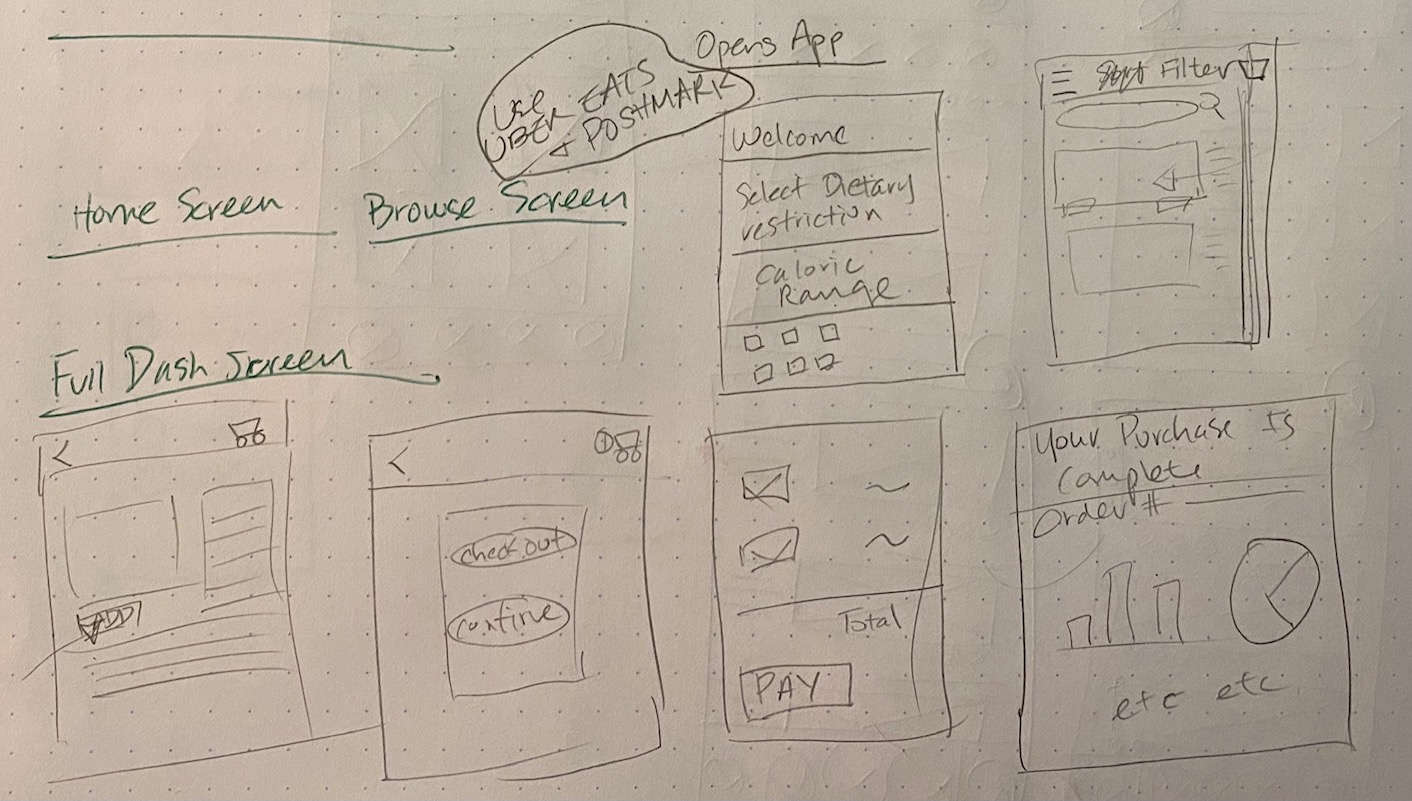 Opens App
Use
UBER EATS
+ POSHMARK
Home Screen
Browse Screen
Welcome
Select Dietary
restriction
Caloric
Range
Filter
Full Dash Screen
ADD
1
check out
continue
Total
PAY
Your Purchase Is
Complete
Order #
etc etc